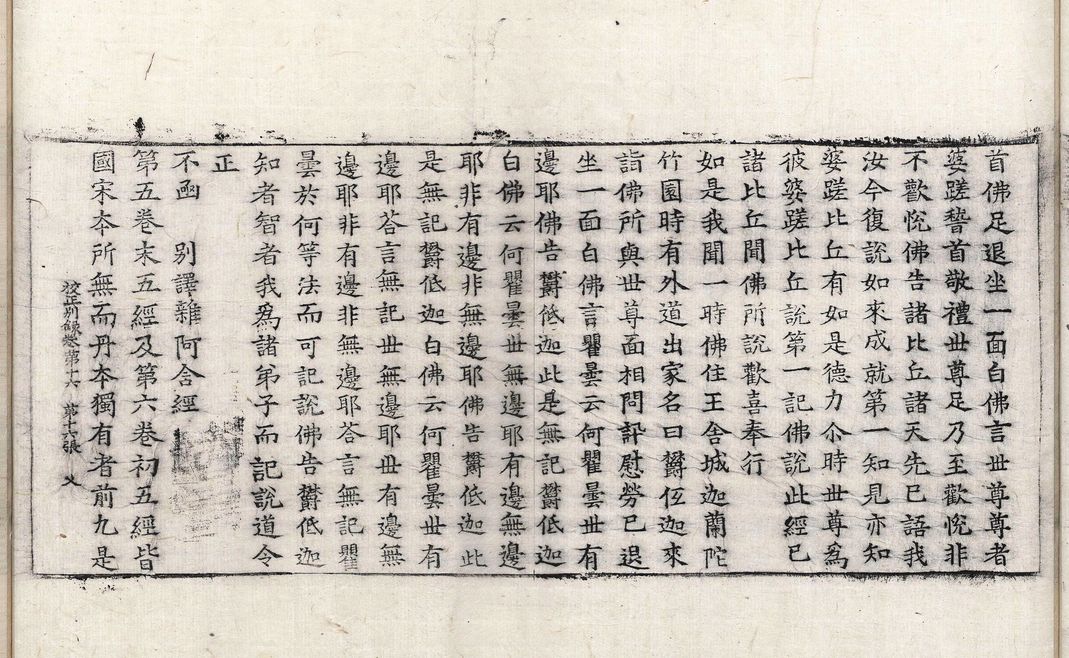 首佛足退坐一面白佛言世尊尊者
婆蹉𥡴首敬禮世尊足乃至歡悅非
不歡悅佛告諸比丘諸天先已語我
汝今復說如來成就第一知見亦知
婆蹉比丘有如是德力尒時世尊爲
彼婆蹉比丘說第一記佛說此經已
諸比丘聞佛所說歡喜奉行
如是我聞一時佛住王舍城迦蘭陀
竹園時有外道出家名曰欝伍迦來
詣佛所與世尊面相問訊慰勞已退
坐一面白佛言瞿曇云何瞿曇世有
邊耶佛告欝低迦此是無記欝低迦
白佛云何瞿曇世無邊耶有邊無邊
耶非有邊非無邊耶佛告欝低迦此
是無記欝低迦白佛云何瞿曇世有
邊耶答言無記世無邊耶世有邊無
邊耶非有邊非無邊耶答言無記瞿
曇於何等法而可記說佛告欝低迦
知者智者我爲諸弟子而記說道令
正
不函　別譯雜阿含經
第五卷末五經及第六卷初五經皆
國宋本所無而丹本獨有者前九是
校正別錄卷第十六　第十六張　父